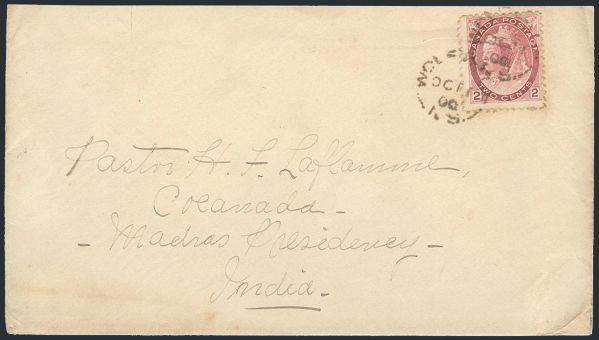 CANADA POSTAGE
2 TWO CENTS 2
WOLFVILLE
OC 11
00
N.S.
Pastor H. F. Laflamme,
Cocanada -
- Madras Presidency -
India -